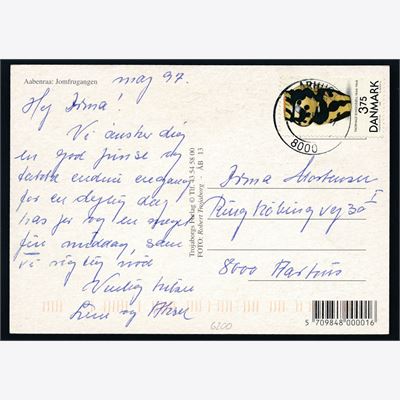 Aabenraa: Jomfrugangen
maj 97.
Hej Irma!
Vi ønsker dig
en god pinse og
takke endnu engang
for en dejlig dag
hos jer og en meget
fin middag, som
vi rigtig nød
Venlig hilsen
og Aksel
Trojaborgs Forlag © Tlf. 53 54 58 00
FOTO: Robert Trojaborg ÅB 13
8000
DANMARK
375
Irma Mortensen
Ringkøbingvej 30 I
8000 Aarhus
6200
5 709848 000016